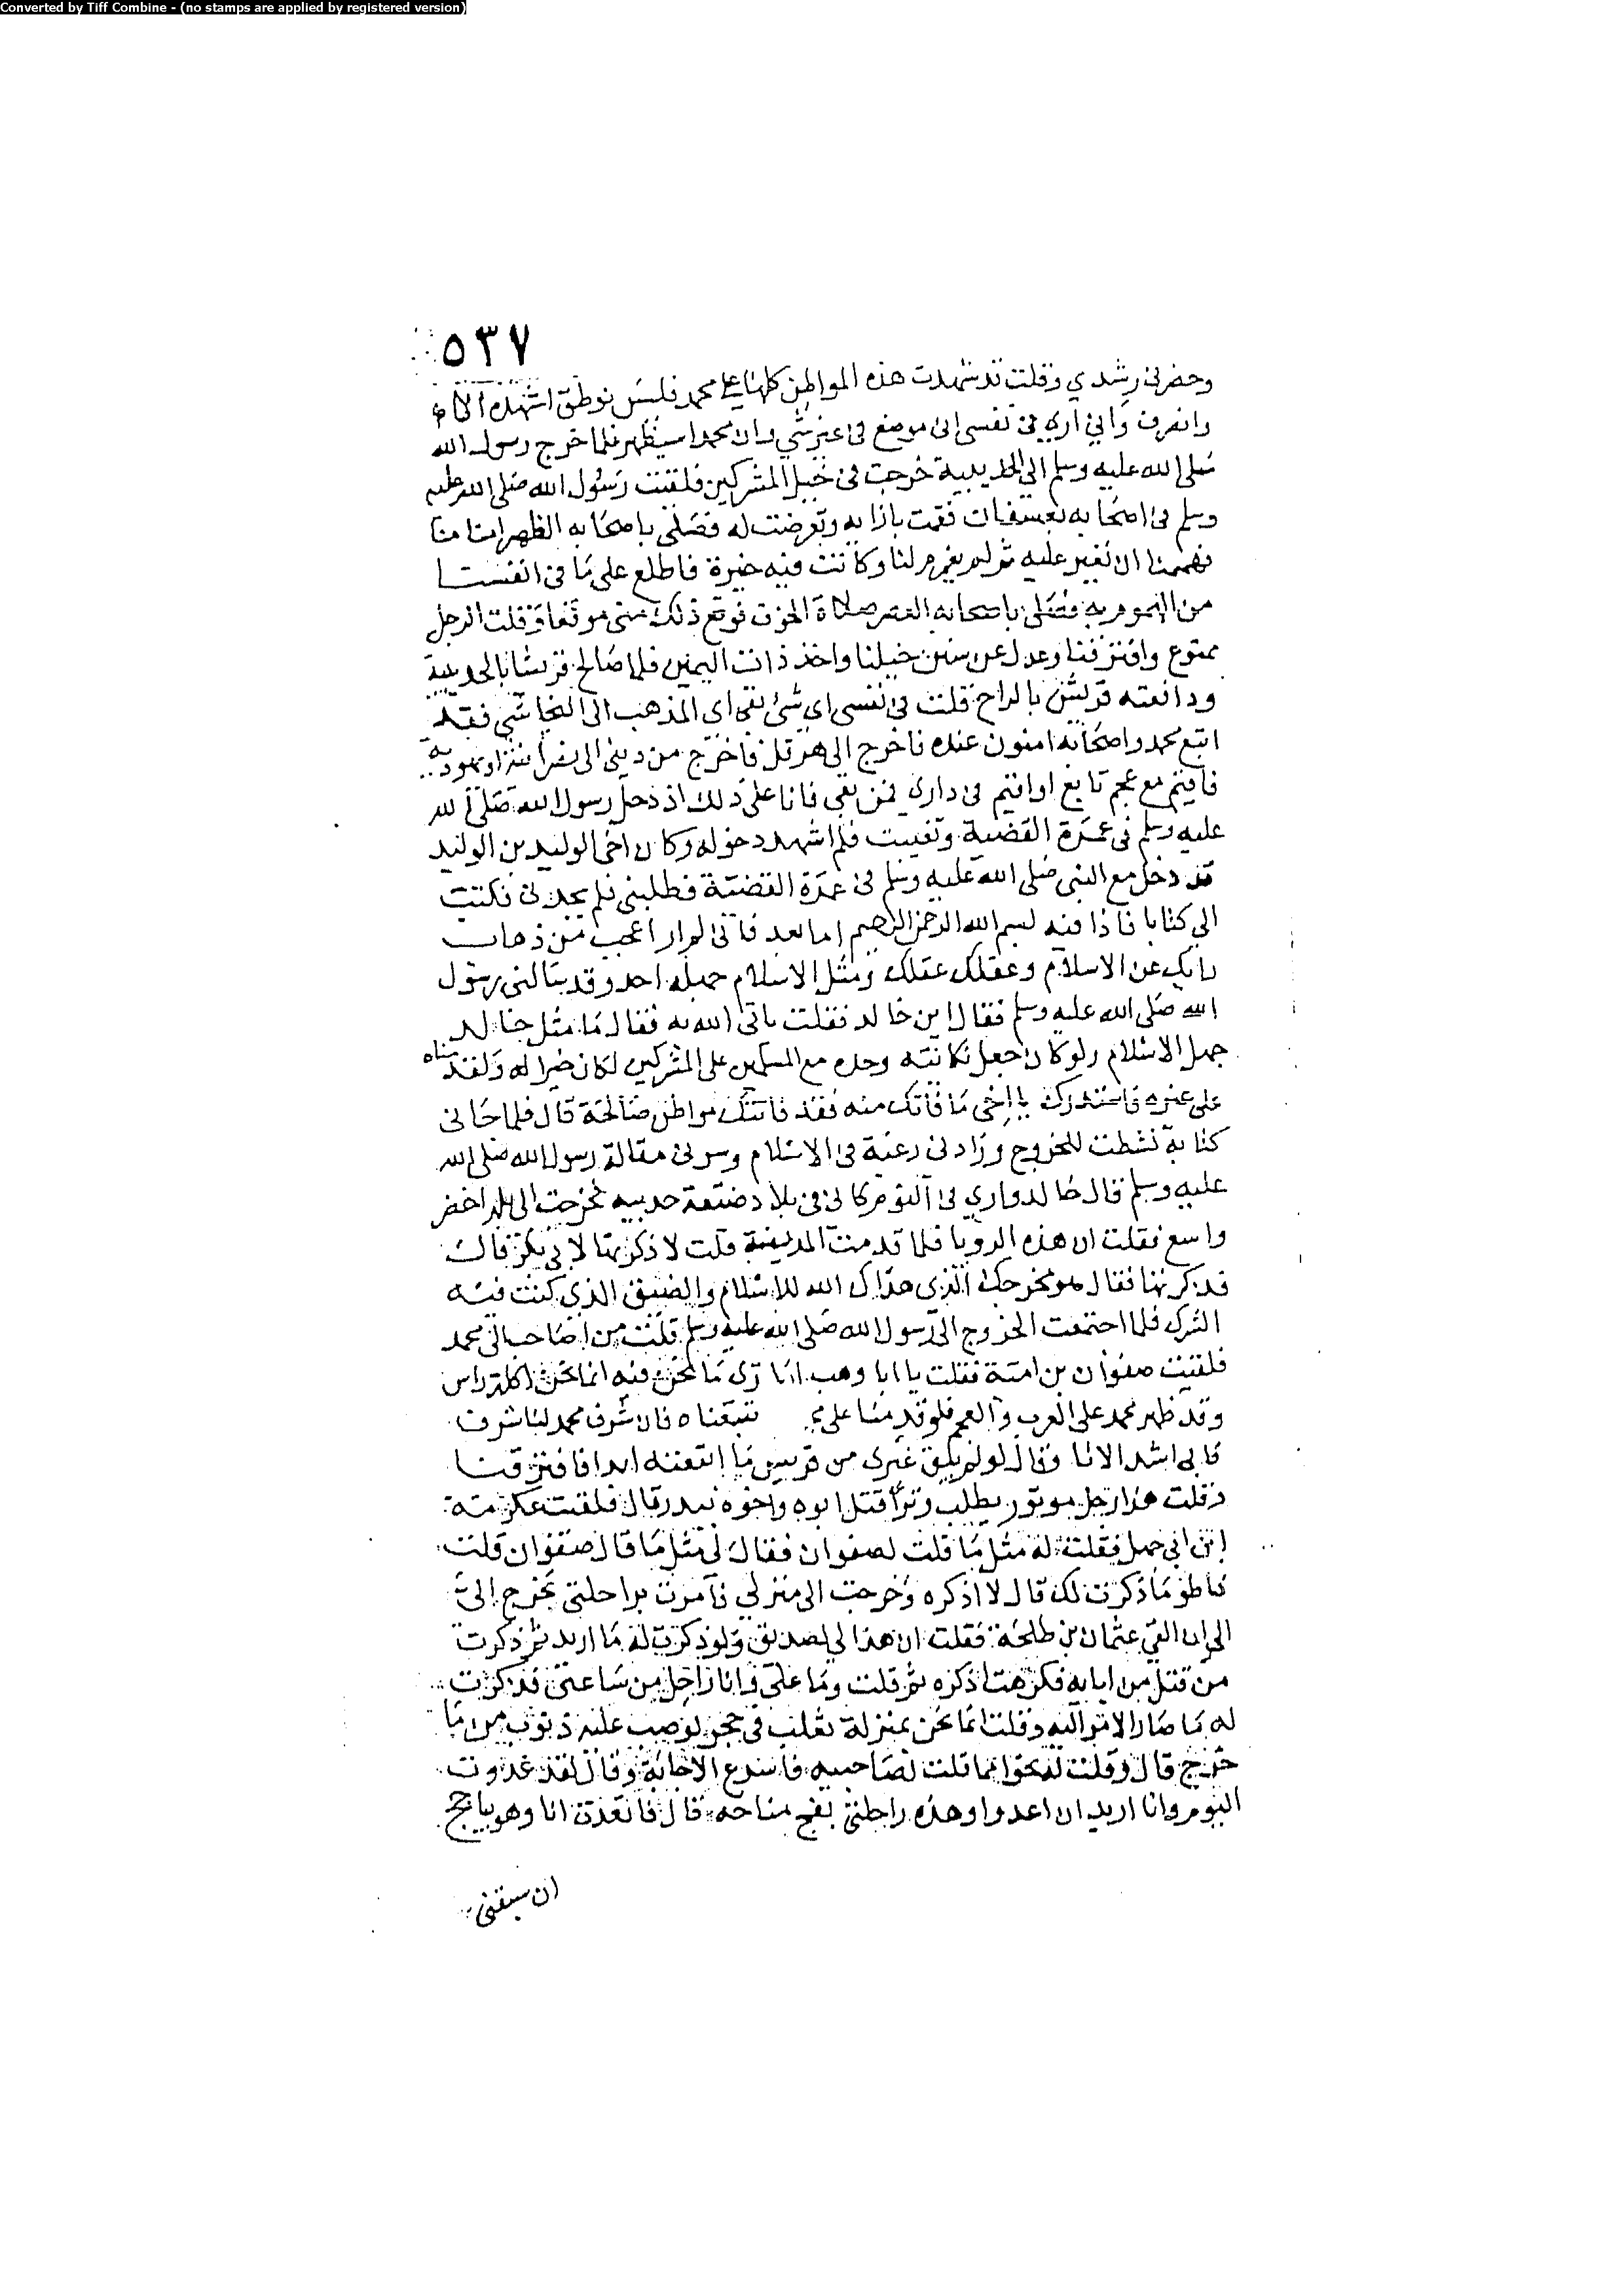 Converted by Tiff Combine - (no stamps are applied by registered version)
٥٣٧
وحضرني رشدي وقلت قد شهدت هذه المواطن كلها على محمد فليس موطن اشهده الا
وانصرف واني اري في نفسي اني موضع في غير شي وان محمدا سيظهر فلما خرج رسول الله
صلى الله عليه وسلم الى الحديبية خرجت في خيل المشركين فلقيت رسول الله صلى الله عليه
وسلم في اصحابه بعسفان فقمت بازايه وتعرضت له فصلى باصحابه الظهر امنا منا
فهممنا ان نغير عليه ثم لم يعزم لنا وكانت فيه خيرة فاطلع على ما في انفسنا
من الهموم به فصلى باصحابه العصر صلاة الخوف فوقع ذلك مني موقعا وقلت الرجل
ممنوع وافترقنا وعدل عن سنن خيلنا واخذ ذات اليمين فلما صالح قريشا بالحديبية
ودافعته قريش بالراح قلت في نفسي اي شي بقي اي المذهب الى النجاشي فقد
اتبع محمد واصحابه امنون عنده فاخرج الى هرقل فاخرج من ديني الى نصرانية او يهودية
فاقيم مع عجم تابع او اقيم في داري فمن بقي فانا على ذلك اذ دخل رسول الله صلى الله
عليه وسلم في عمرة القضية وتغيبت فلم اشهد دخوله وكان اخي الوليد بن الوليد
قد دخل مع النبي صلى الله عليه وسلم في عمرة القضية فطلبني فلم يجدني فكتب
الي كتابا فاذا فيه بسم الله الرحمن الرحيم اما بعد فاني لم ار اعجب من ذهاب
رايك عن الاسلام وعقلك عقلك ومثل الاسلام جهله احد وقد سالني رسول
الله صلى الله عليه وسلم فقال اين خالد فقلت ياتي الله به فقال ما مثل خالد
جهل الاسلام ولو كان جعل نكايته وحده مع المسلمين على المشركين لكان خيرا له ولقدمناه
على غيره فاستدرك يا اخي ما فاتك منه فقد فاتتك مواطن صالحة قال فلما جاني
كتابه نشطت للخروج وزادني رغبة في الاسلام وسرني مقالة رسول الله صلى الله
عليه وسلم قال خالد واري في النوم كاني في بلاد ضيقة جدبيه فخرجت الى بلد اخضر
واسع فقلت ان هذه الرويا فلما قدمت المدينة قلت لاذكرنها لابي بكر قال
فذكرتها فقال هو مخرجك الذي هداك الله للاسلام والضيق الذي كنت فيه
الشرك فلما اجتمعت الخروج الى رسول الله صلى الله عليه وسلم قلت من اصاحب الى محمد
فلقيت صفوان بن امية فقلت يا ابا وهب اما ترى ما نحن فيه انما نحن اكلة راس
وقد ظهر محمد على العرب والعجم فلو قدمنا على محمد تبعناه فان شرف محمد لنا شرف
فابى اشد الابا وقال لو لم يبق غيري من قريش ما اتبعته ابدا فافترقنا
وقلت هذا رجل موتور يطلب وترا قتل ابوه واخوه ببدر قال فلقيت عكرمة
ابن ابي جهل فقلت له مثل ما قلت لصفوان فقال لي مثل ما قال صفوان قلت
فاطو ما ذكرت لك قال لا اذكره وخرجت الى منزلي فامرت براحلتي تخرج الي
الى ان القي عثمان بن طلحة فقلت ان هذا لي لصديق ولو ذكرت له ما اريد ثم ذكرت
من قتل من ابايه فكرهت اذكره ثم قلت وما علي وانا راحل من ساعتي فذكرت
له ما صار الامر اليه وقلت انما نحن بمنزلة ثعلب في جحر لو صب عليه ذنوب من ما
خرج قال وقلت له نحوا مما قلت لصاحبيه فاسرع الاجابة وقال لقد غدوت
اليوم وانا اريد ان اغدوا وهذه راحلتي بفج مناخه قال فاتعدت انا وهو بياجج
ان سبقني